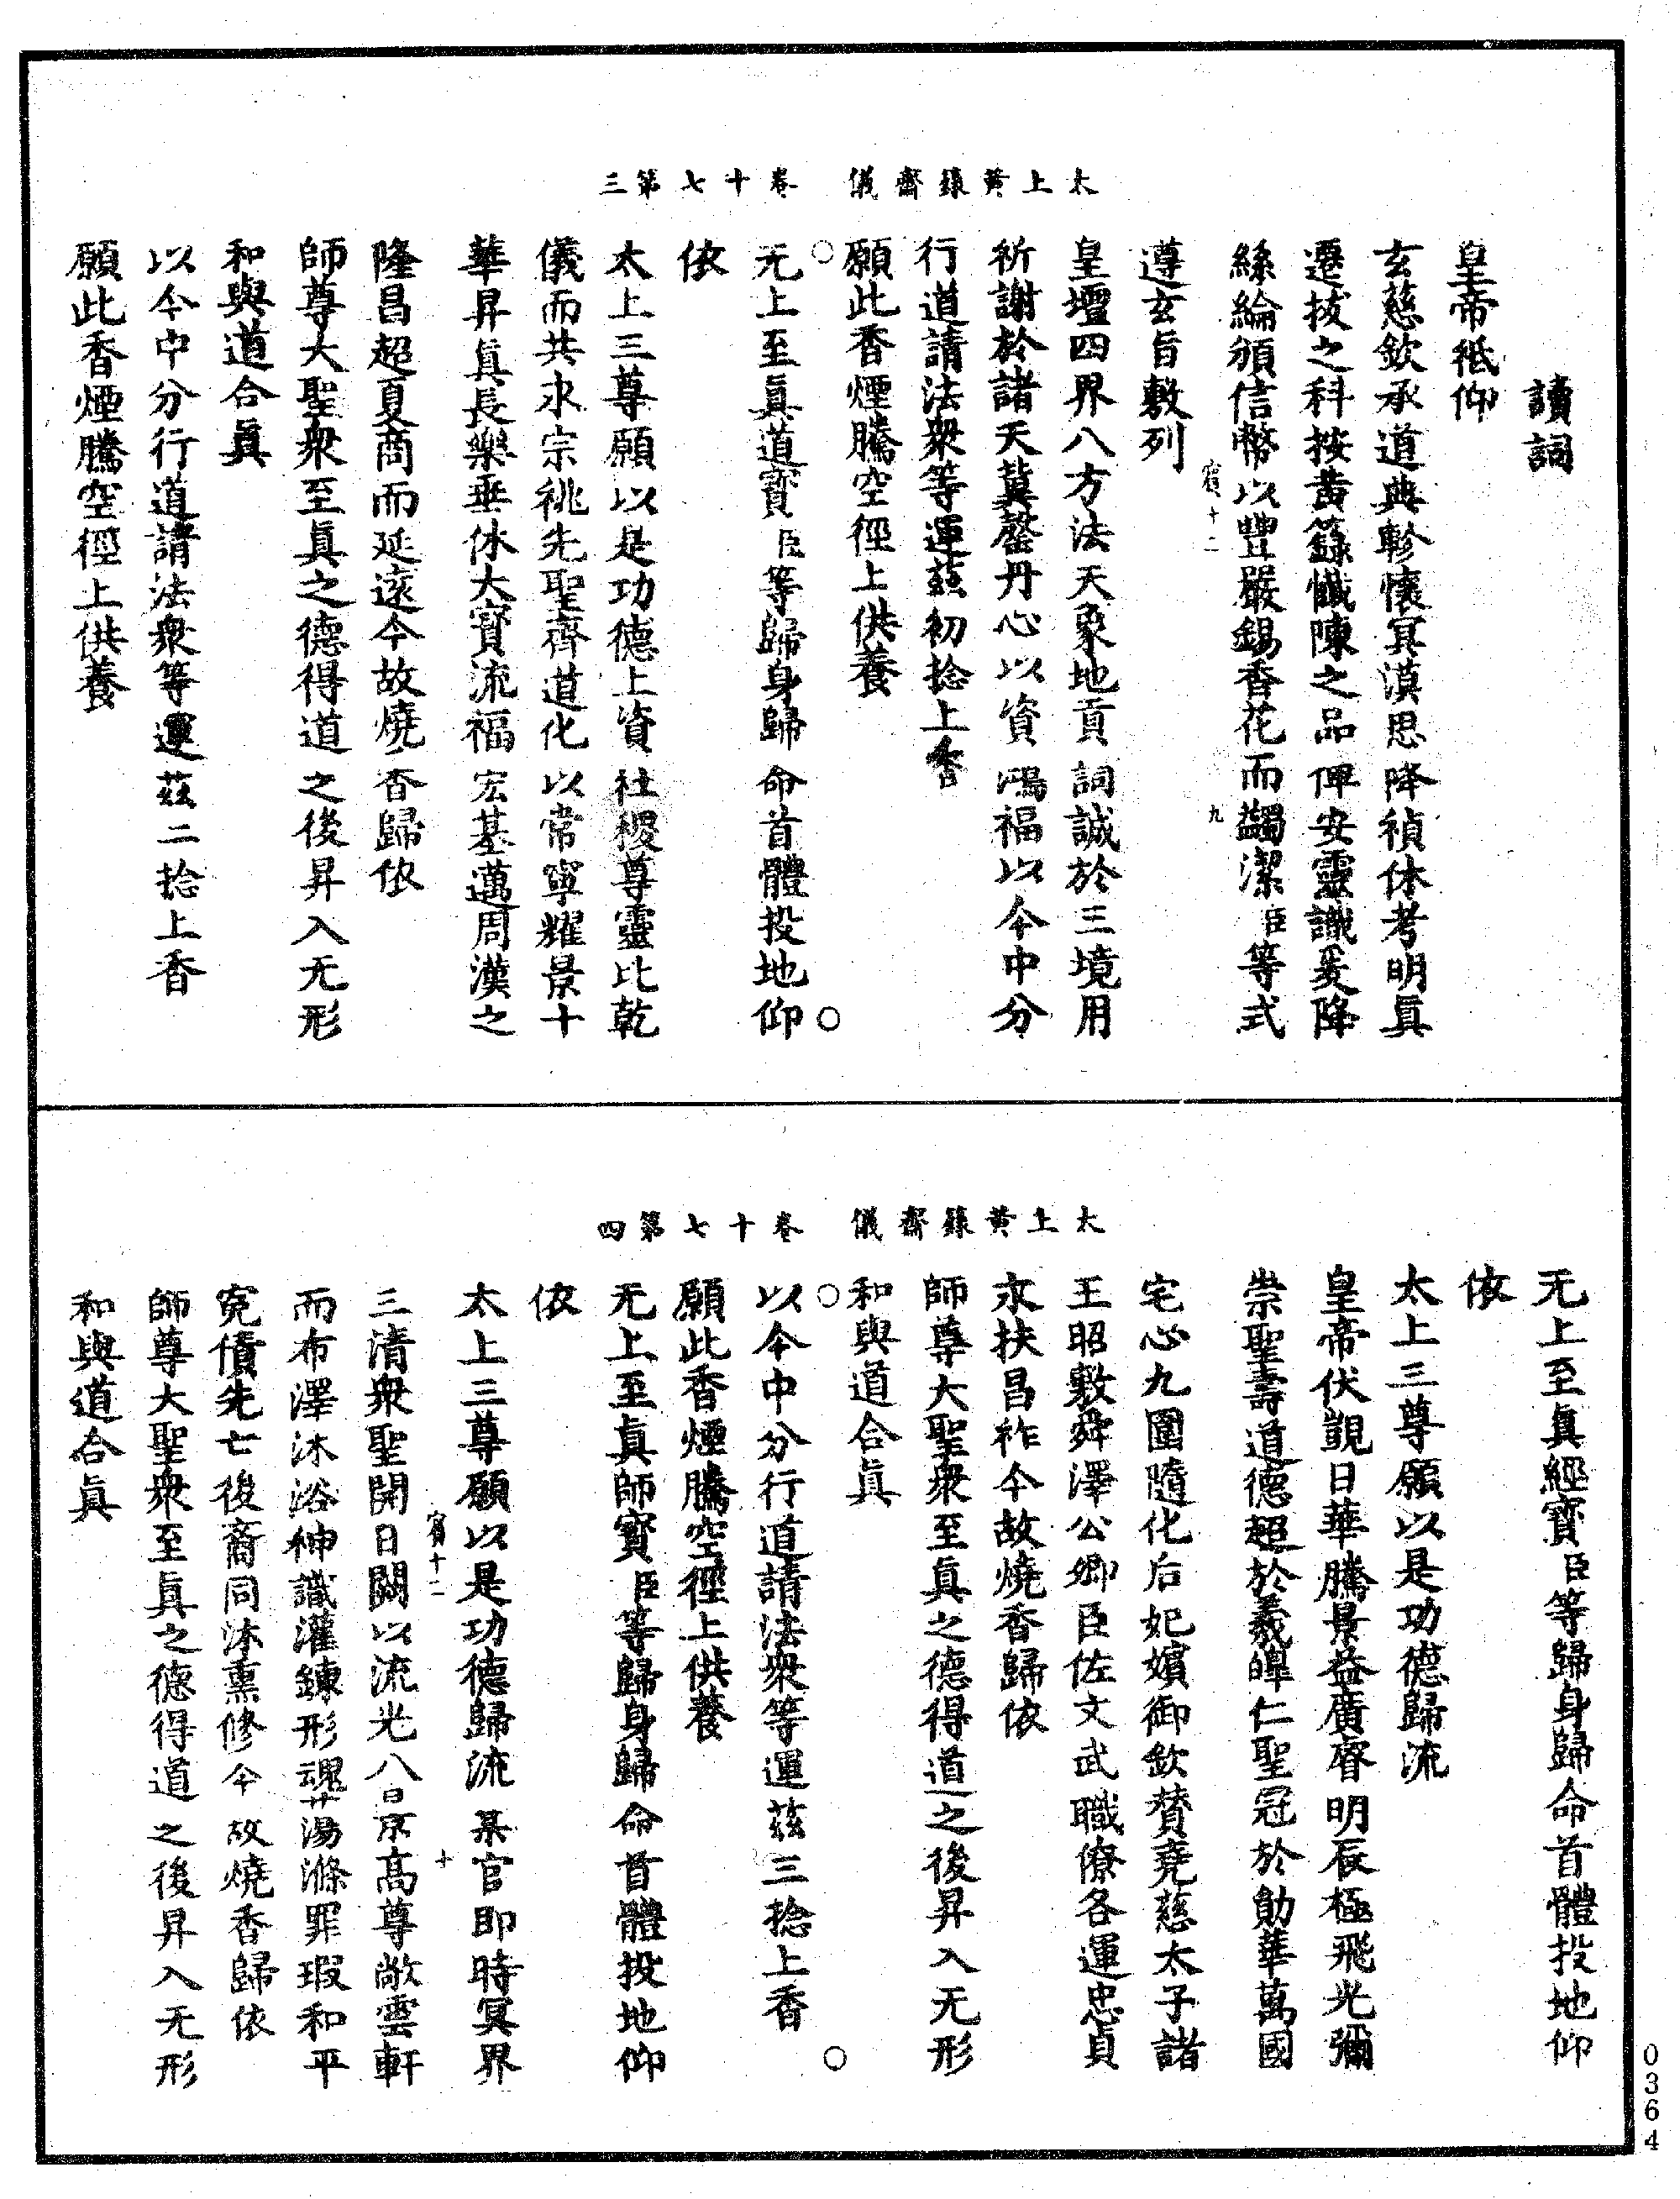 太上黃籙齋儀　卷十七第三
讀詞
皇帝祗仰
玄慈欽承道典軫懷冥漠思降禎休考明眞
遷拔之科按黃籙懺陳之品俾安靈識爰降
絲綸頒信幣以豐嚴錫香花而蠲潔臣等式
賓十二　九
遵玄旨敷列
皇壇四界八方法天象地貢詞誠於三境用
祈謝於諸天冀罄丹心以資鴻福以今中分
行道請法衆等運茲初捻上香
願此香煙騰空徑上供養
○　○
无上至眞道寳臣等歸身歸命首體投地仰
依
太上三尊願以是功德上資社稷尊靈比乾
儀而共永宗祧先聖齊道化以常寧耀景十
華昇眞長樂垂休大寳流福宏基邁周漢之
隆昌超夏商而延遠今故燒香歸依
師尊大聖衆至眞之德得道之後昇入无形
和與道合眞
以今中分行道請法衆等運茲二捻上香
願此香煙騰空徑上供養
太上黃籙齋儀　卷十七第四
无上至眞經寳臣等歸身歸命首體投地仰
依
太上三尊願以是功德歸流
皇帝伏覬日華騰景益廣睿明辰極飛光彌
崇聖壽道德超於羲皥仁聖冠於勛華萬國
宅心九圍隨化后妃嬪御欽贊堯慈太子諸
王昭敷舜澤公卿臣佐文武職僚各運忠貞
永扶昌祚今故燒香歸依
師尊大聖衆至眞之德得道之後昇入无形
和與道合眞
○　○
以今中分行道請法衆等運茲三捻上香
願此香煙騰空徑上供養
无上至眞師寳臣等歸身歸命首體投地仰
依
太上三尊願以是功德歸流某官即時冥界
賓十二　十
三清衆聖開日闕以流光八景高尊敞雲軒
而布澤沐浴神識灌鍊形魂蕩滌罪瑕和平
寃債先亡後裔同沐熏修今故燒香歸依
師尊大聖衆至眞之德得道之後昇入无形
和與道合眞
0364